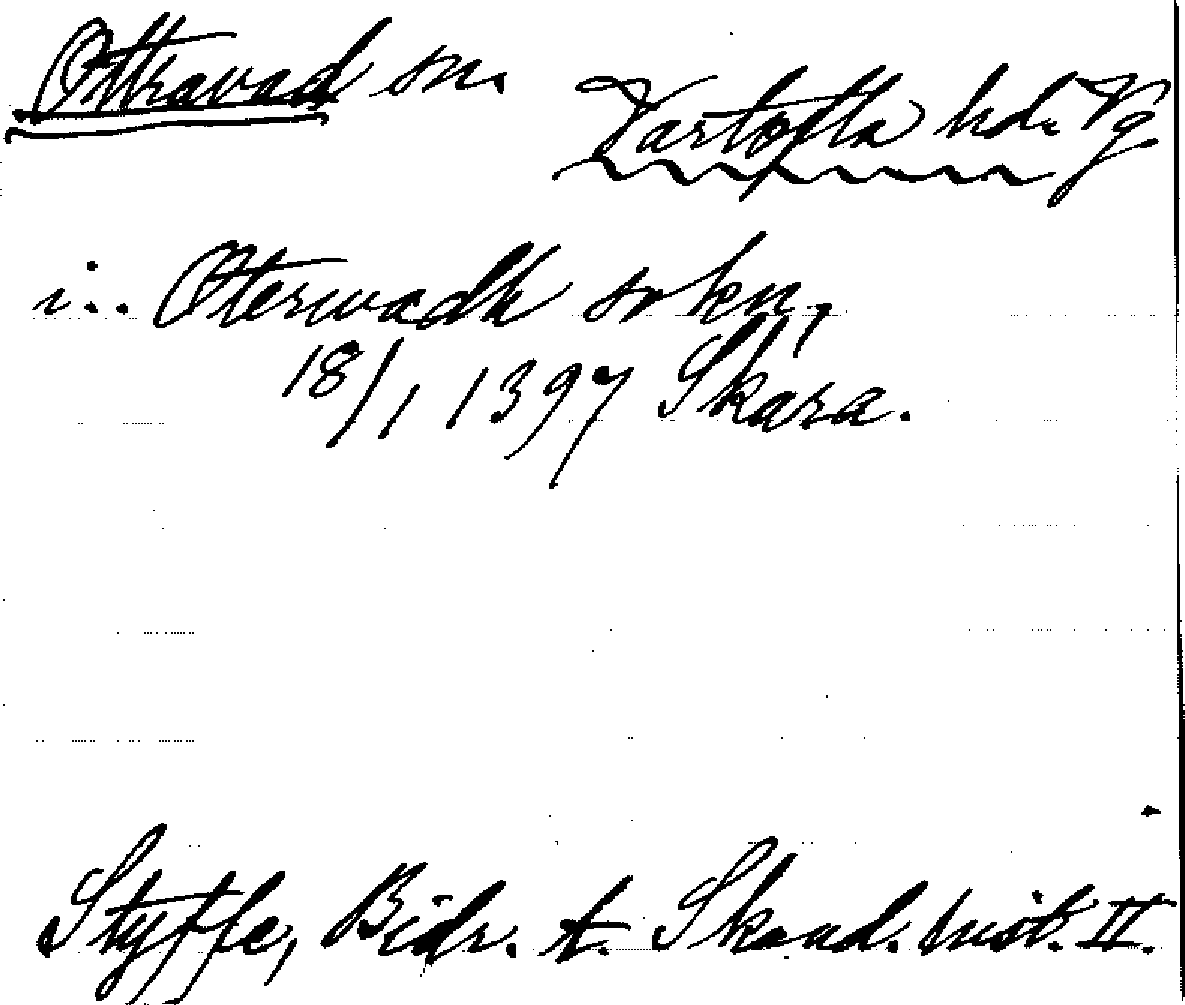 Ottravad sn. Vartofta hd. Vg.
i.. Oterwadh sokn,
18/1 1397 Skara.
Styffe, Bidr. t. Skand. hist. II.